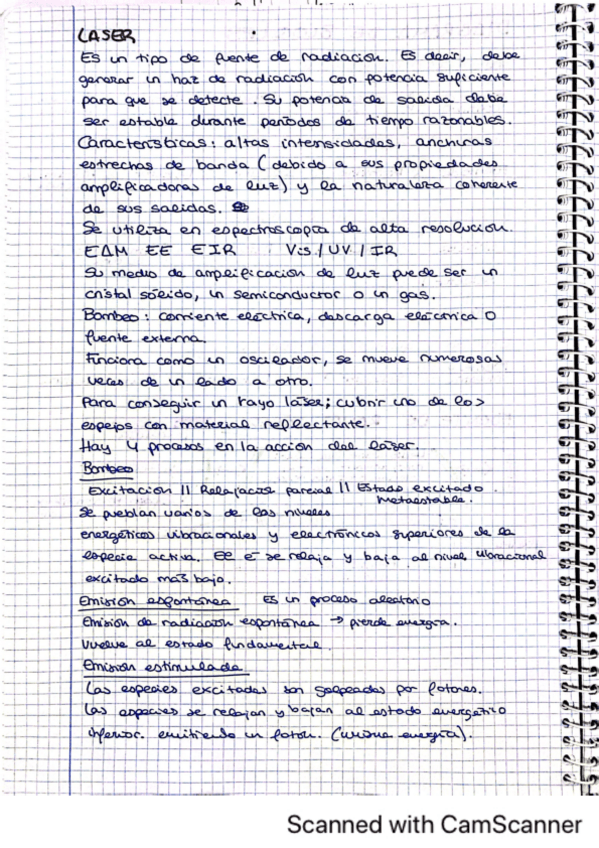 LASER
Es un tipo de fuente de radiación. Es decir, debe
generar un haz de radiación con potencia suficiente
para que se detecte. Su potencia de salida debe
ser estable durante periodos de tiempo razonables.
Características: altas intensidades, anchuras
estrechas de banda (debido a sus propiedades
amplificadoras de luz) y la naturaleza coherente
de sus salidas.
Se utiliza en espectroscopía de alta resolución.
EAM EE EIR Vis/UV/IR
Su medio de amplificación de luz puede ser un
cristal sólido, un semiconductor o un gas.
Bombeo: corriente eléctrica, descarga eléctrica o
fuente externa.
Funciona como un oscilador, se mueve numerosas
veces de un lado a otro.
Para conseguir un rayo láser; cubrir uno de los
espejos con material reflectante.
Hay 4 procesos en la acción del láser.
Bombeo
Excitación || Relajación parcial || Estado excitado
metaestable.
Se pueblan varios de los niveles
energéticos vibracionales y electrónicos superiores de la
especie activa. El e⁻ se relaja y baja al nivel vibracional
excitado más bajo.
Emisión espontánea Es un proceso aleatorio
Emisión de radiación espontánea → pierde energía.
Vuelve al estado fundamental.
Emisión estimulada
Las especies excitadas son golpeadas por fotones.
Las especies se relajan y bajan al estado energético
inferior. emitiendo un fotón. (misma energía).
Scanned with CamScanner